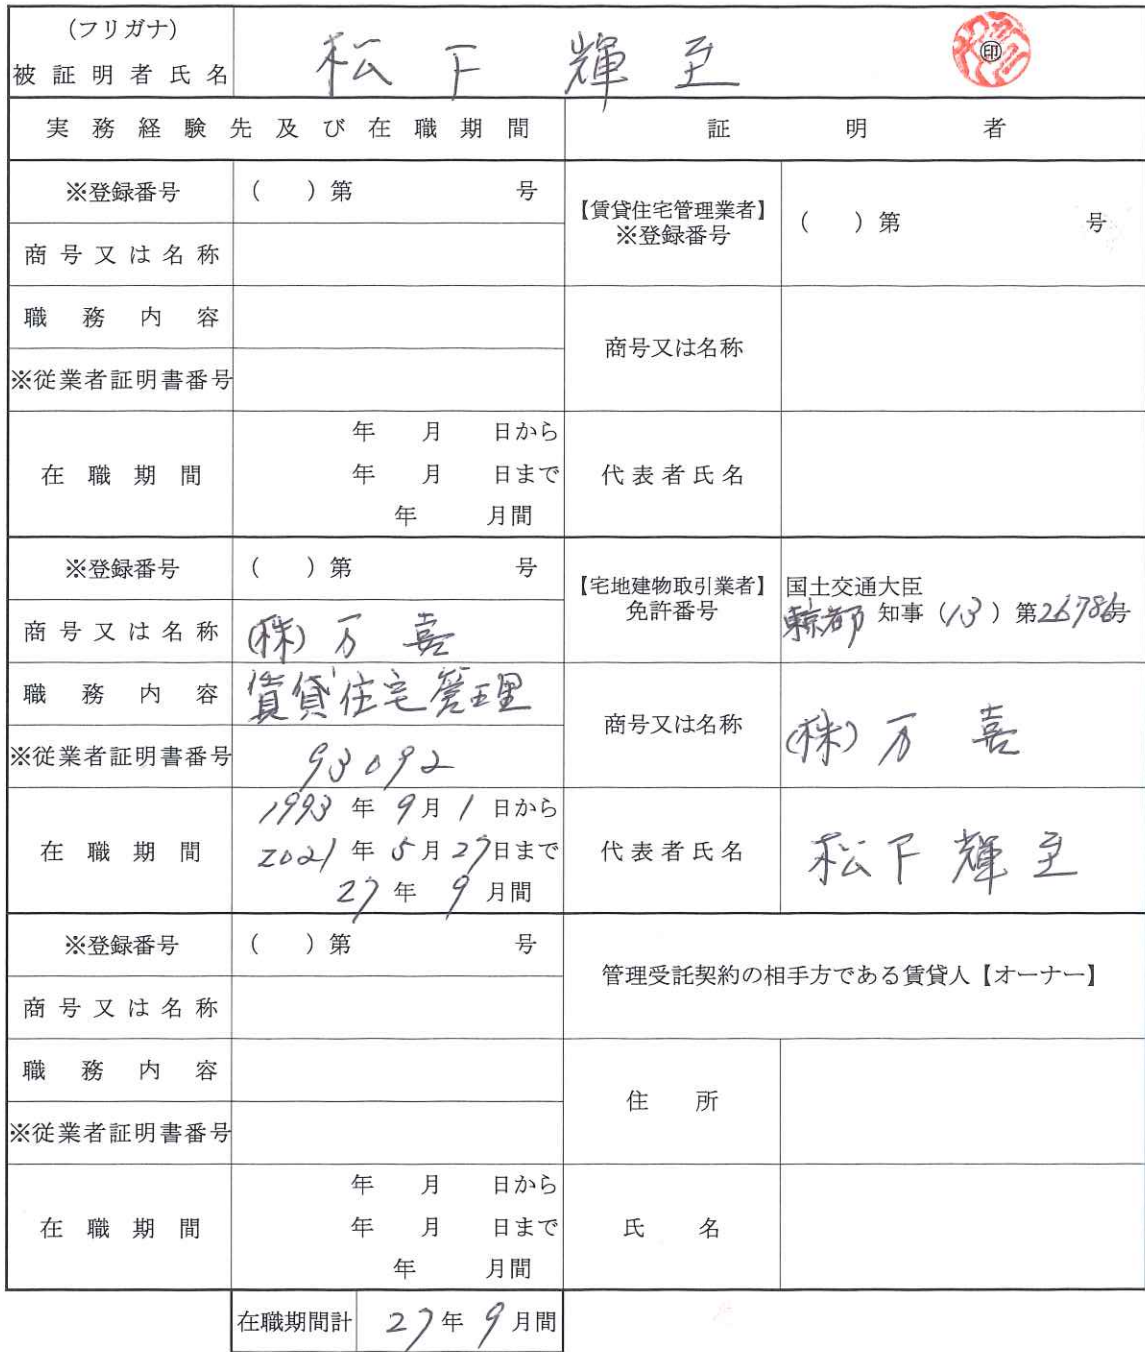 (フリガナ)
被証明者氏名 松下 輝至 ㊞
実務経験先及び在職期間 証明者
※登録番号 ( )第 号
【賃貸住宅管理業者】
※登録番号 ( )第 号
商号又は名称
職務内容
商号又は名称
※従業者証明書番号
年 月 日から
在職期間 年 月 日まで
年 月間
代表者氏名
※登録番号 ( )第 号
【宅地建物取引業者】
免許番号
国土交通大臣
東京都 知事 (13) 第26786号
商号又は名称 (株) 万喜
職務内容 賃貸住宅管理
商号又は名称 (株) 万喜
※従業者証明書番号 93092
1993 年 9 月 1 日から
在職期間 2021 年 5 月 27 日まで
27 年 9 月間
代表者氏名 松下輝至
※登録番号 ( )第 号
管理受託契約の相手方である賃貸人【オーナー】
商号又は名称
職務内容
住所
※従業者証明書番号
年 月 日から
在職期間 年 月 日まで
年 月間
氏名
在職期間計 27 年 9 月間